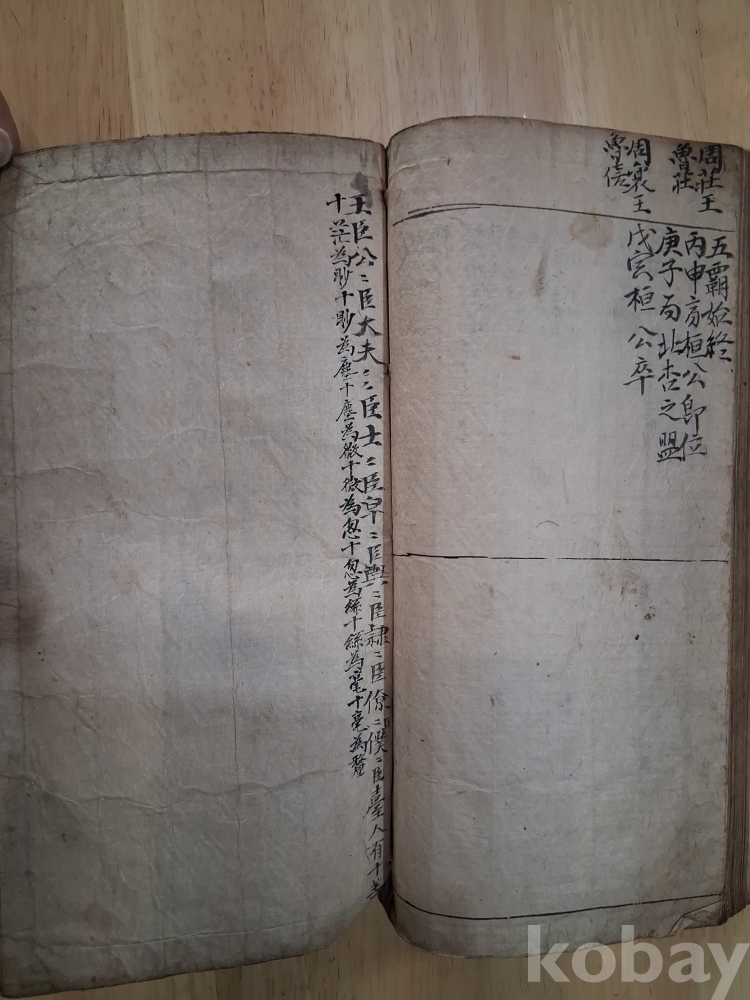 周莊王
魯莊
周襄王
魯信
五霸始終
丙申齊桓公卽位
庚子 北杏之盟
戊寅桓公卒
王臣公〻臣大夫〻〻臣士〻臣皁〻臣輿〻臣隸〻臣僚〻臣僕〻臣臺人有十等
十茫為眇十眇為塵十塵為微十微為忽十忽為絲十絲為毫十毫為釐
kobay